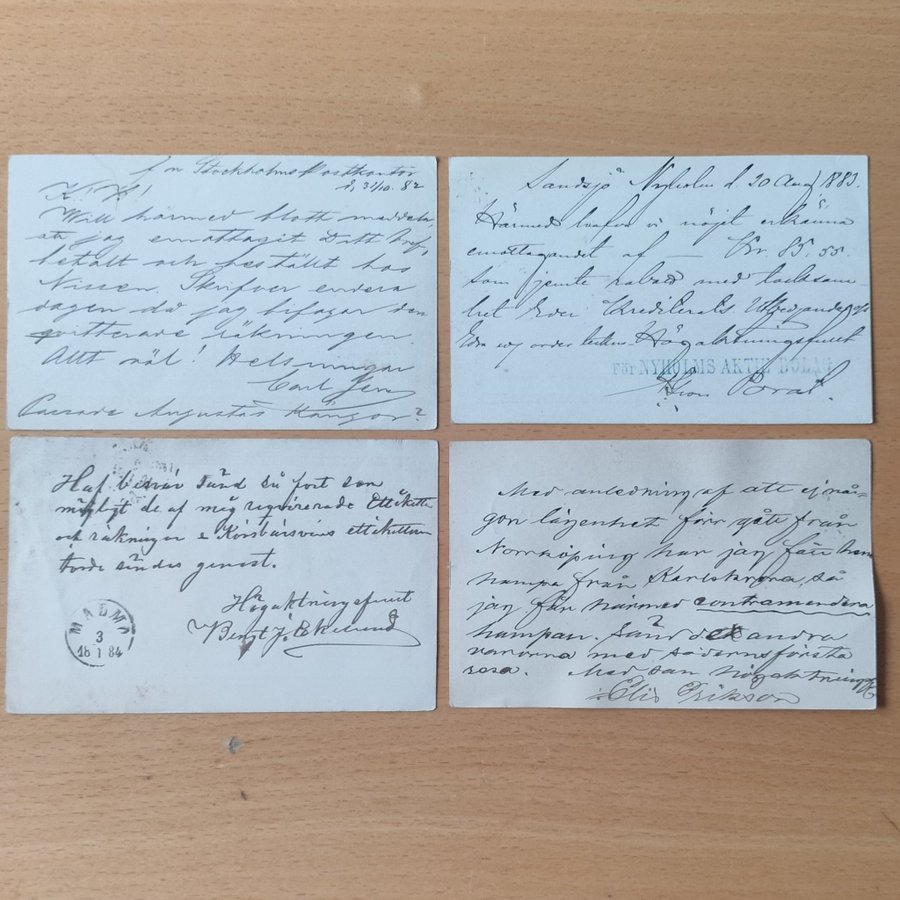 fr m Stockholms Postkontor
d. 31/10. 82
K. H!
Will härmed blott meddela,
att jag emottagit Ditt bref,
betalt och bestält hos
Nissen. Skrifver endera
dagen då jag bifogar den
qvitterade räkningen.
Allt väl! Helsningar
Carl
Augustas
Landsjö Nyholm d. 20 Aug 1883.
Härmed hafva vi nöjet erkänna
emottagandet af — Kr. 85.55.
som jemte rabatt med tacksam-
het Eder Krediterats.
Högaktningsfullt
För NYHOLMS AKTIE BOLAG
Haf besvär sänd så fort som
möjligt de af mig reqvirerade Ettikette
och räkningen Körsbärsvins ettiketten
torde sändes genast.
Högaktningsfullt
Bengt J. Ekelund
MALMÖ
3
18 1 84
Med anledning af att ej nå-
gon lägenhet förr gått från
Norrköping har jag fått
hampa från Karlskrona, så
jag får härmed contramendera
hampan. Sänd de andra
varorna med södernsförsta
resa. Med san högaktning
Elis Erikson